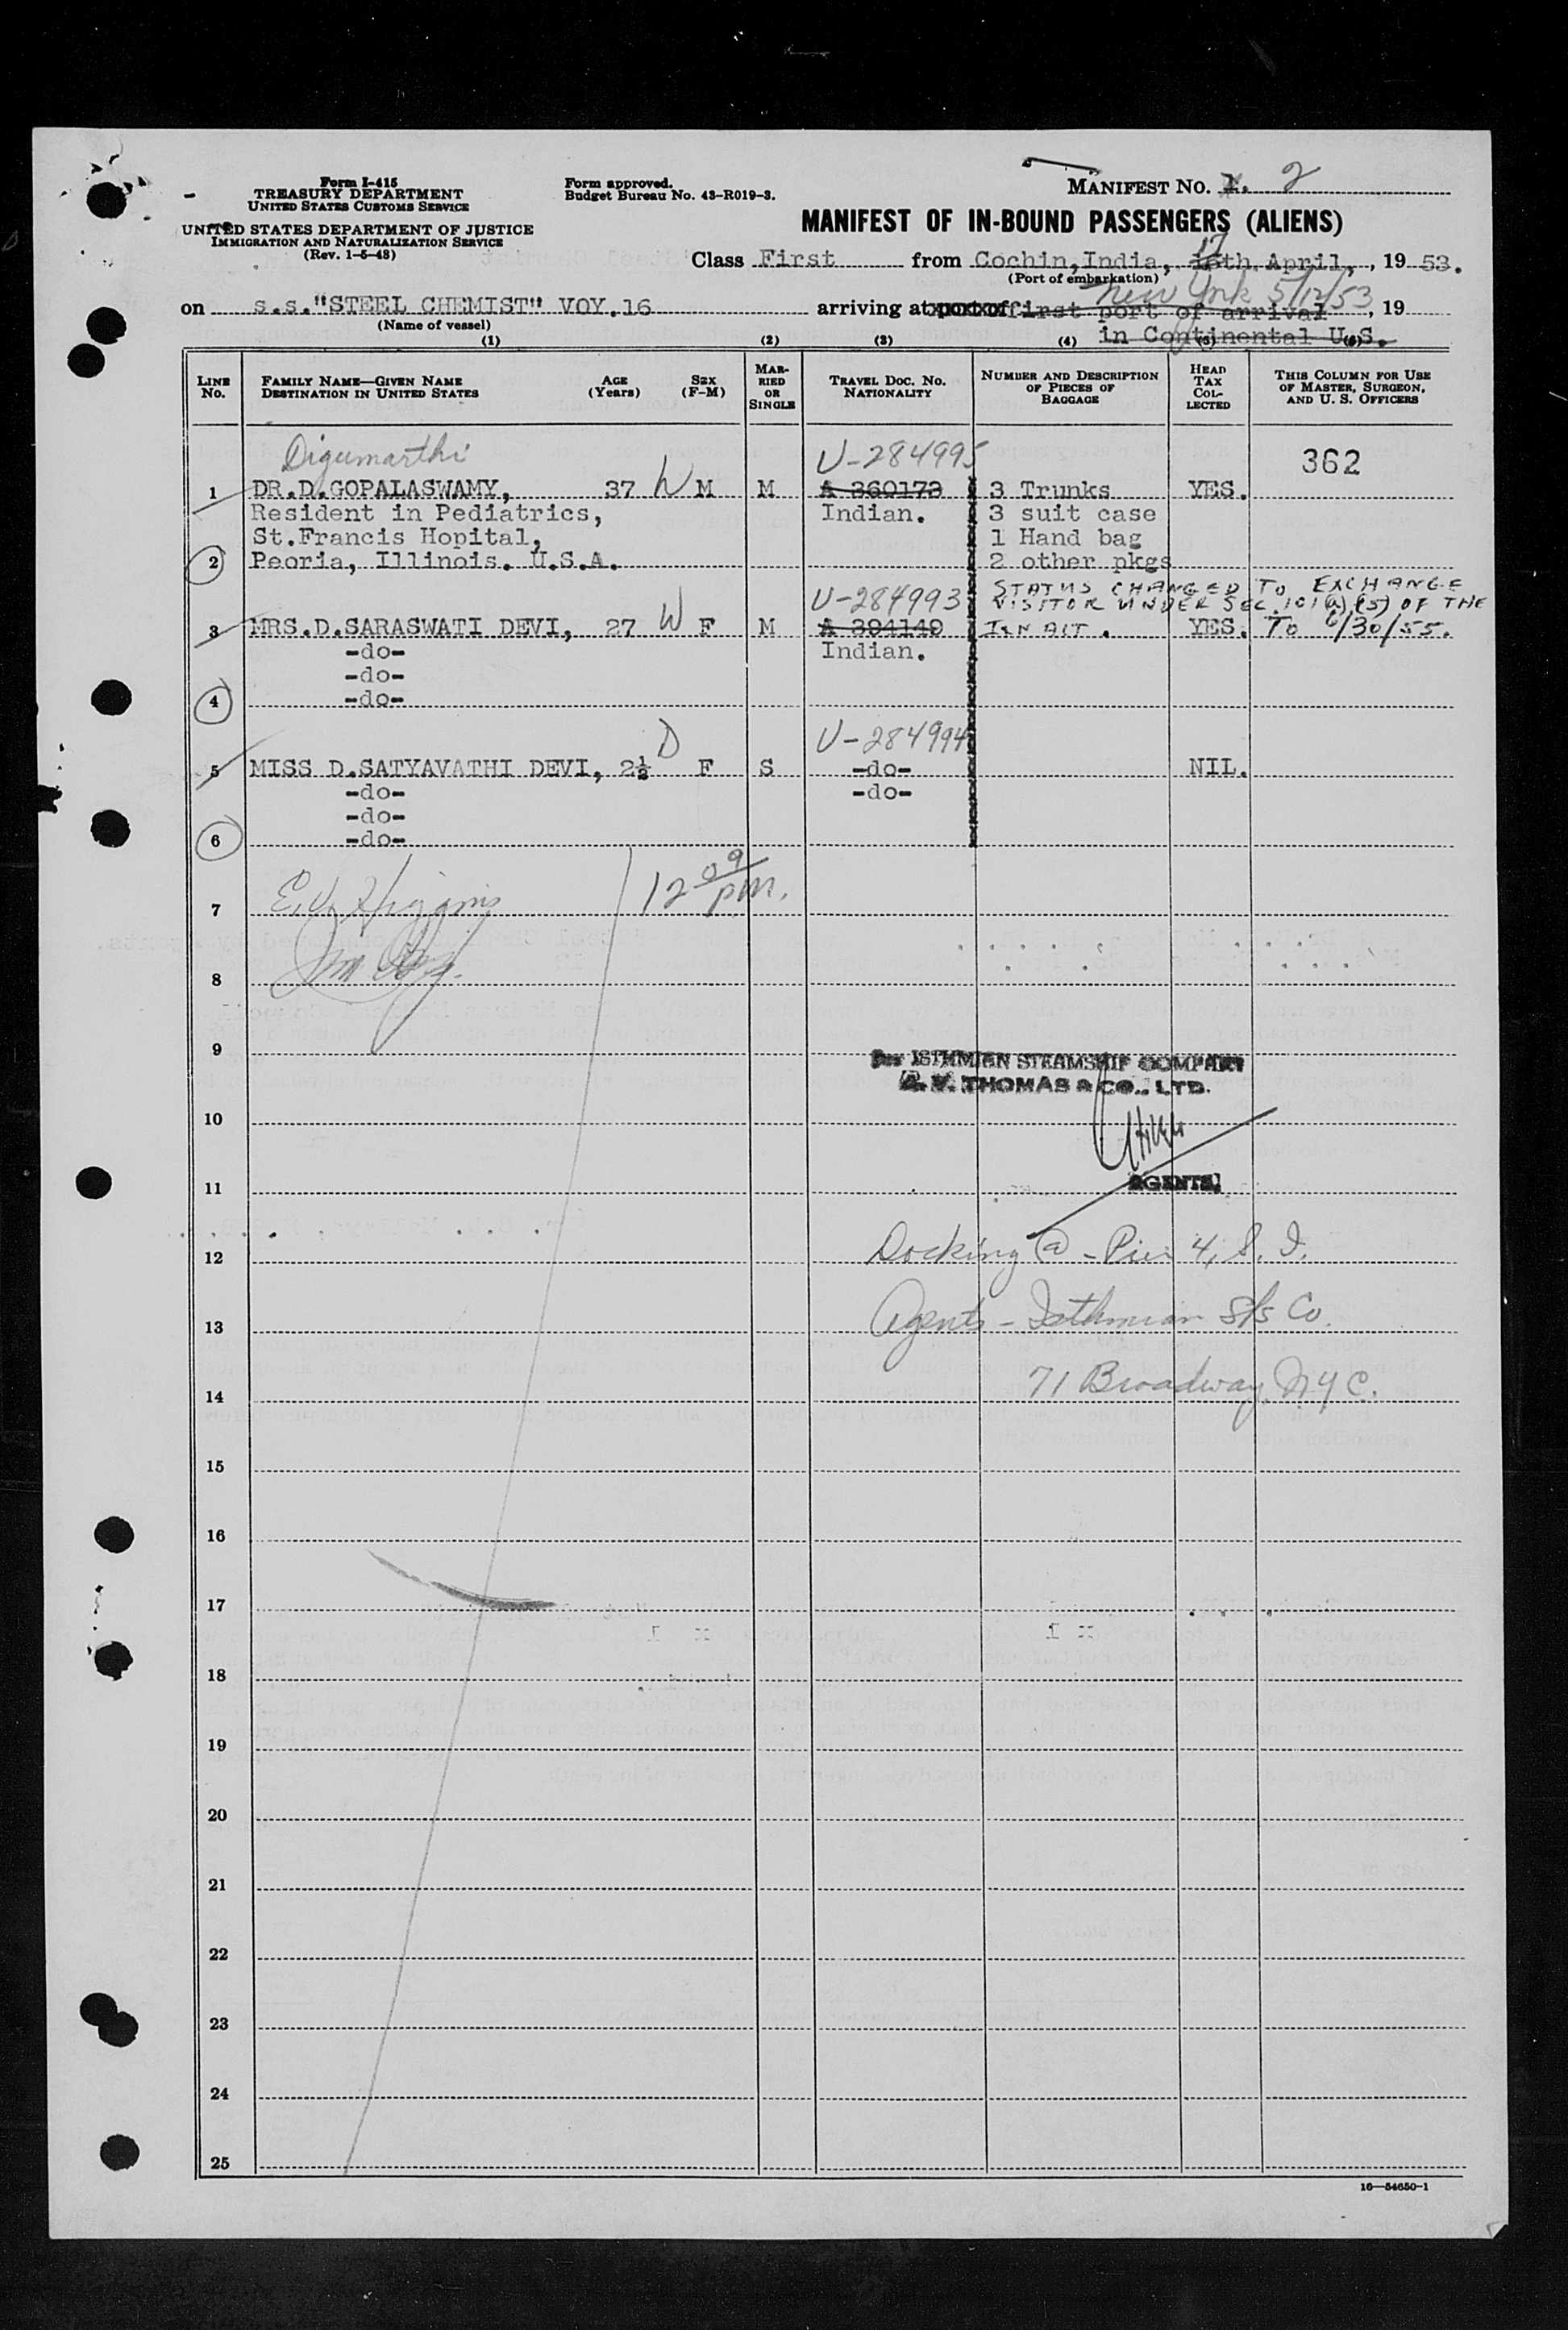 Form I-415
TREASURY DEPARTMENT
UNITED STATES CUSTOMS SERVICE
UNITED STATES DEPARTMENT OF JUSTICE
IMMIGRATION AND NATURALIZATION SERVICE
(Rev. 1-5-48)
Form approved.
Budget Bureau No. 43-R019-3.
MANIFEST NO. 1. 2
MANIFEST OF IN-BOUND PASSENGERS (ALIENS)
Class First from Cochin,India, 17 16th April, , 19 53.
(Port of embarkation)
New York 5/12/53
on s.s."STEEL CHEMIST" VOY.16 arriving at port of first port of arrival , 19
(Name of vessel)
in Continental U.S.
(1) (2) (3) (4) (5) (6)
LINE NO.
FAMILY NAME—GIVEN NAME
DESTINATION IN UNITED STATES
AGE (Years)
SEX (F-M)
MARRIED OR SINGLE
TRAVEL DOC. NO.
NATIONALITY
NUMBER AND DESCRIPTION OF PIECES OF BAGGAGE
HEAD TAX COLLECTED
THIS COLUMN FOR USE OF MASTER, SURGEON, AND U. S. OFFICERS
Digumarthi U-284995 362
1 DR.D.GOPALASWAMY, 37 W M M A 360173 3 Trunks YES.
Resident in Pediatrics, Indian. 3 suit case
St.Francis Hopital, 1 Hand bag
2 Peoria, Illinois. U.S.A. 2 other pkgs
STATUS CHANGED TO EXCHANGE
U-284993 VISITOR UNDER SEC. 101(a)(15) OF THE
3 MRS.D.SARASWATI DEVI, 27 W F M A 394149 I & N ACT. YES. TO 6/30/55.
-do- Indian.
-do-
4 -do-
D U-284994
5 MISS D.SATYAVATHI DEVI, 2½ F S -do- NIL.
-do- -do-
-do-
6 -do-
7 E.V. Higgins 12 09 pm.
8
9
For ISTHMIAN STEAMSHIP COMPANY
A. V. THOMAS & CO., LTD.
10
11 AGENTS.
12 Docking @ - Pier 4, S. I.
13 Agents - Isthmian S/S Co.
14 71 Broadway, NYC.
15
16
17
18
19
20
21
22
23
24
25
16—54650-1